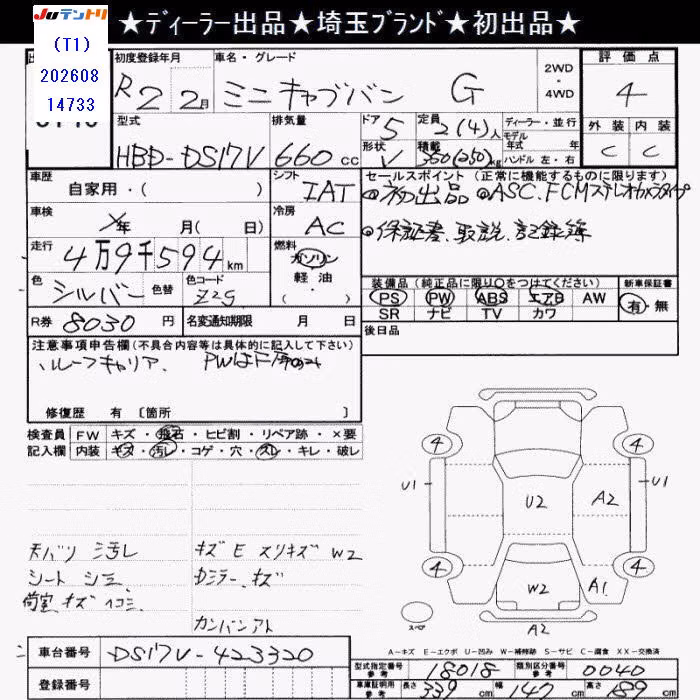 JUテントリ
★ディーラー出品★埼玉ブランド★初出品★
(T1)
202608
14733
初度登録年月
R2 2月
車名・グレード
ミニキャブバン G
2WD
・
4WD
評価点
4
外装 内装
C C
型式
HBD-DS17V
排気量
660 cc
ドア 5
形状 V
定員 2(4)人
積載 350(250)kg
ディーラー・並行
モデル
年式 年
ハンドル 左・右
車歴
自家用・( )
シフト
IAT
車検
年 月( 日)
冷房
AC
走行
4万9千594km
燃料
ガソリン
軽油
( ・ )
色
シルバー
色替
色コード
Z2S
R券 8030円
名変通知期限 月 日
セールスポイント(正常に機能するものに限ります)
初出品 ASC.FCMステレオカメラタイプ
保証書.取説.記録簿
装備品(純正品に限り○をつけてください)
PS PW ABS エアB AW
SR ナビ TV カワ
新車保証書
有・無
後日品
注意事項申告欄(不具合内容等は具体的に記入して下さい)
ルーフキャリア. PWはF席のみ
修復歴 有〔箇所 〕
検査員
記入欄
FW キズ・飛石・ヒビ割・リペア跡・×要
内装 キズ・汚レ・コゲ・穴・スレ・キレ・破レ
天バリ シ汚レ
シート シミ
荷室 キズ ヘコミ
キズ E スリキズ W2
Dミラー キズ
カンバンアト
4 4
U1 U2 A2 U1
4 4
W2 A1
A2
スペア
A-キズ E-エクボ U-凹み W-補修跡 S-サビ C-腐食 XX-交換済
車台番号 DS17V-423320
登録番号
型式指定番号
参考
18018
類別区分番号
参考
0040
車庫証明用
参考
長さ 339 cm 幅 147 cm 高さ 189 cm